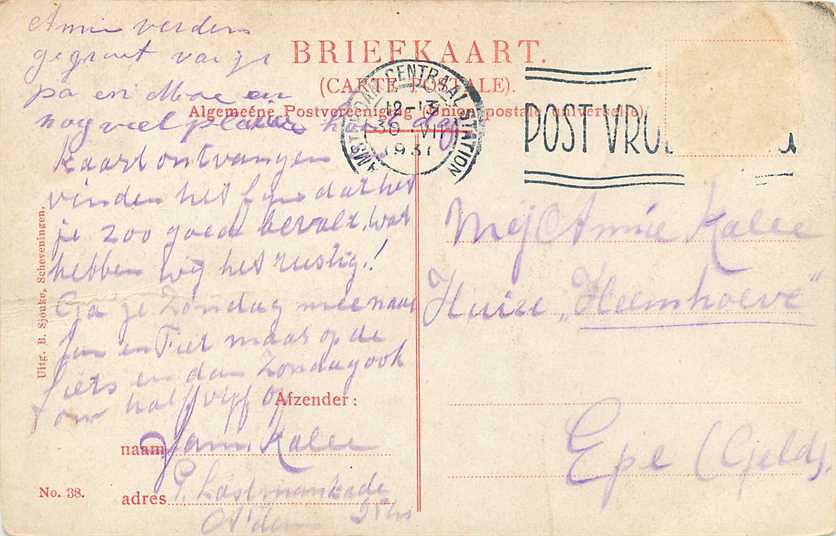 Annie verders
gegroet van je
pa en Moe en
nog veel plezier
BRIEFKAART.
(CARTE POSTALE).
Algemeene Postvereeniging (Union postale universelle)
AMSTERDAM CENTRAAL STATION
12-13
30 VII
1931
POST VROE
kaart ontvangen
vinden het fijn dat het
je zoo goed bevalt, wat
hebben wij het rustig!
Ga je Zondag mee naar
Jan en Fiet maar op de
fiets en dan Zondag ook
om half vijf op
Uitg. B. Sjouke, Scheveningen.
Afzender:
naam Jam. Kalee
adres P. Lastmankade
A'dam
No. 38.
Mej Annie Kalee
Huize „Heemhoeve"
Epe (Geld)